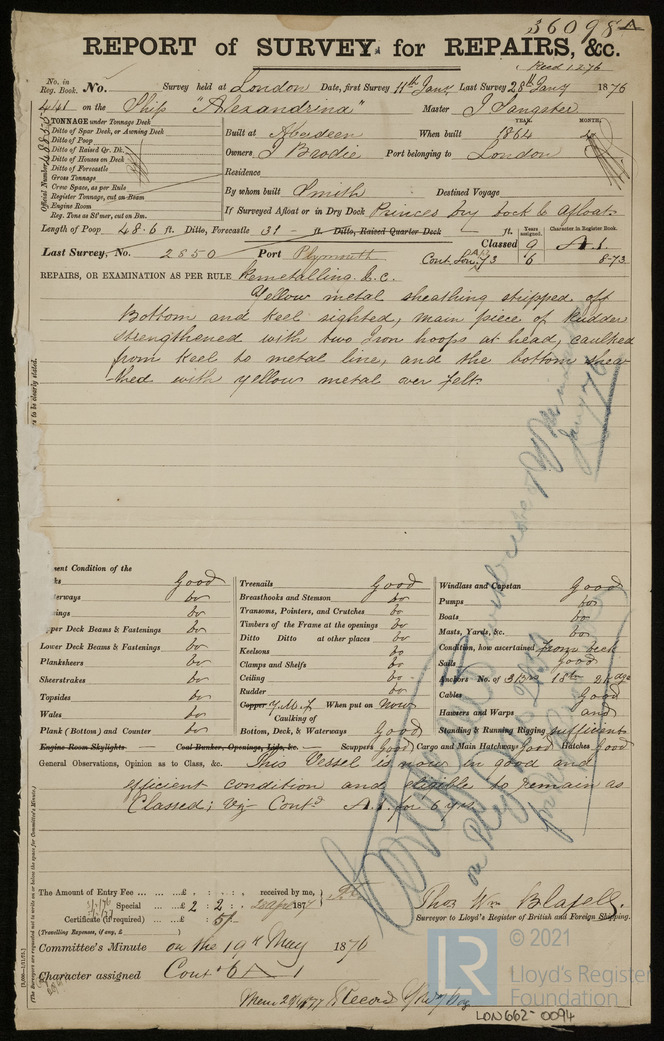 36098
REPORT of SURVEY for REPAIRS, &c.
No. in Reg. Book. No. Survey held at London Date, first Survey 11th Jany Last Survey 28th Jany 1876
441 on the Ship "Alexandrina" Master J Sangster
TONNAGE under Tonnage Deck
Ditto of Spar Deck, or Awning Deck
Ditto of Poop
Ditto of Raised Qr. Dk.
Ditto of Houses on Deck
Ditto of Forecastle
Gross Tonnage
Crew Space, as per Rule
Register Tonnage, cut on Beam
Engine Room
Reg. Tons as St'mer, cut on Bm.
Official Number
YEAR. MONTH.
Built at Aberdeen When built 1864 4
Owners J Brodie Port belonging to London
Residence
By whom built Smith Destined Voyage
If Surveyed Afloat or in Dry Dock Princes Dry Dock & Afloat
Length of Poop 48.6 ft. Ditto, Forecastle 31 - ft. Ditto, Raised Quarter Deck ft.
Years assigned. Character in Register Book.
Classed 9 A 1
Last Survey, No. 2850 Port Plymouth Cont. Lon. 73 6 8-73
REPAIRS, OR EXAMINATION AS PER RULE Remetalling &c.
Yellow metal sheathing stripped off
Bottom and keel sighted, main piece of Rudder
strengthened with two Iron hoops at head, caulked
from keel to metal line, and the bottom shea-
thed with yellow metal over felt.
to be clearly stated.
ent Condition of the
ks Good
erways Do
ings Do
pper Deck Beams & Fastenings Do
Lower Deck Beams & Fastenings Do
Planksheers Do
Sheerstrakes Do
Topsides Do
Wales Do
Plank (Bottom) and Counter Do
Engine Room Skylights Coal Bunker, Openings, Lids, &c.
Treenails Good
Breasthooks and Stemson Do
Transoms, Pointers, and Crutches Do
Timbers of the Frame at the openings Do
Ditto Ditto at other places Do
Keelsons Do
Clamps and Shelfs Do
Ceiling Do
Rudder Do
Copper Y.M. When put on Now
Caulking of
Bottom, Deck, & Waterways Good
Scuppers Good Cargo and Main Hatchways Good Hatches Good
Windlass and Capstan Good
Pumps Do
Boats Do
Masts, Yards, &c. Do
Condition, how ascertained from deck
Sails Good
Anchors No. of 3 Brs 1 Stm 2 Kdgs
Cables Good
Hawsers and Warps and
Standing & Running Rigging sufficient
General Observations, Opinion as to Class, &c. This Vessel is now in good and
efficient condition and eligible to remain as
Classed; viz Contd A.1. for 6 yrs
The Amount of Entry Fee £ : : received by me,
Special £ 2 : 2 :
Certificate (if required) £ : 5/-
(Travelling Expenses, if any, £ )
Thos Wm Blaxell.
Surveyor to Lloyd's Register of British and Foreign Shipping.
Committee's Minute on the 19th May 1876
Character assigned Contd 6 A 1
(The Surveyors are requested not to write on or below the space for Committee's Minute.)
LR
© 2021
Lloyd's Register
Foundation
LON662-0094